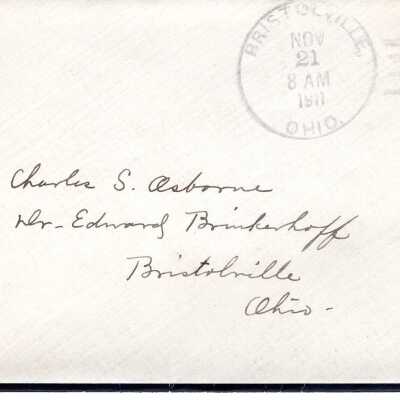 BRISTOLVILLE,
NOV
21
8 AM
1911
OHIO.
Charles S. Osborne
Dr- Edward Brinkerhoff
Bristolville
Ohio-